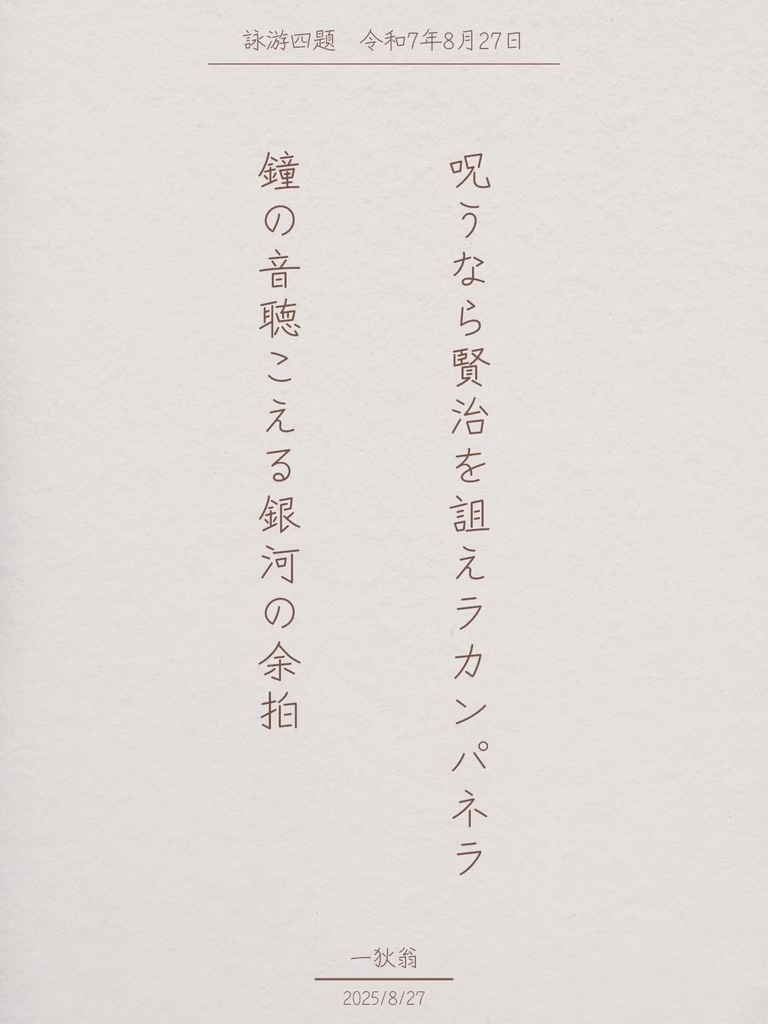 詠游四題　令和7年8月27日
呪うなら賢治を詛えラカンパネラ
鐘の音聴こえる銀河の余拍
一狄翁
2025/8/27